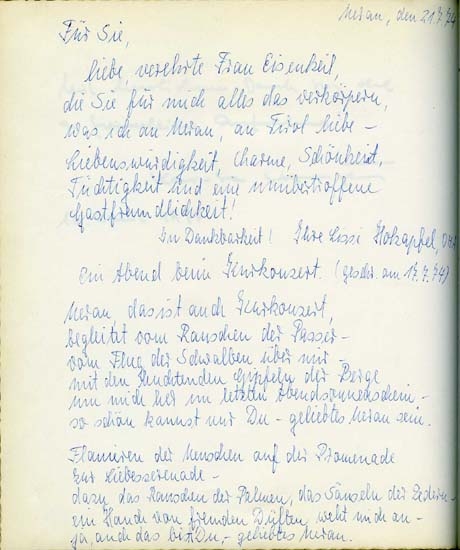 Meran, den 21.7.74
Für Sie,
liebe verehrte Frau Eisenkeil,
die Sie für mich alles das verkörpern,
was ich an Meran, an Tirol liebe –
Liebenswürdigkeit, Charme, Schönheit,
Tüchtigkeit und eine unübertroffene
Gastfreundlichkeit!
In Dankbarkeit! Ihre Lissi Holzapfel,
Ein Abend beim Kurkonzert. (geschr. am 17.7.74)
Meran, das ist auch Kurkonzert,
begleitet vom Rauschen der Passer –
vom Flug der Schwalben über mir –
mit den leuchtenden Gipfeln der Berge
um mich her im letzten Abendsonnenschein –
so schön kannst nur Du – geliebtes Meran sein.
Flanieren der Menschen auf der Promenade
zur Liebesserenade –
dazu das Rauschen der Palmen, das Säuseln der Zedern –
ein Hauch von fremden Düften, weht mich an –
ja, auch das bist Du, – geliebtes Meran.